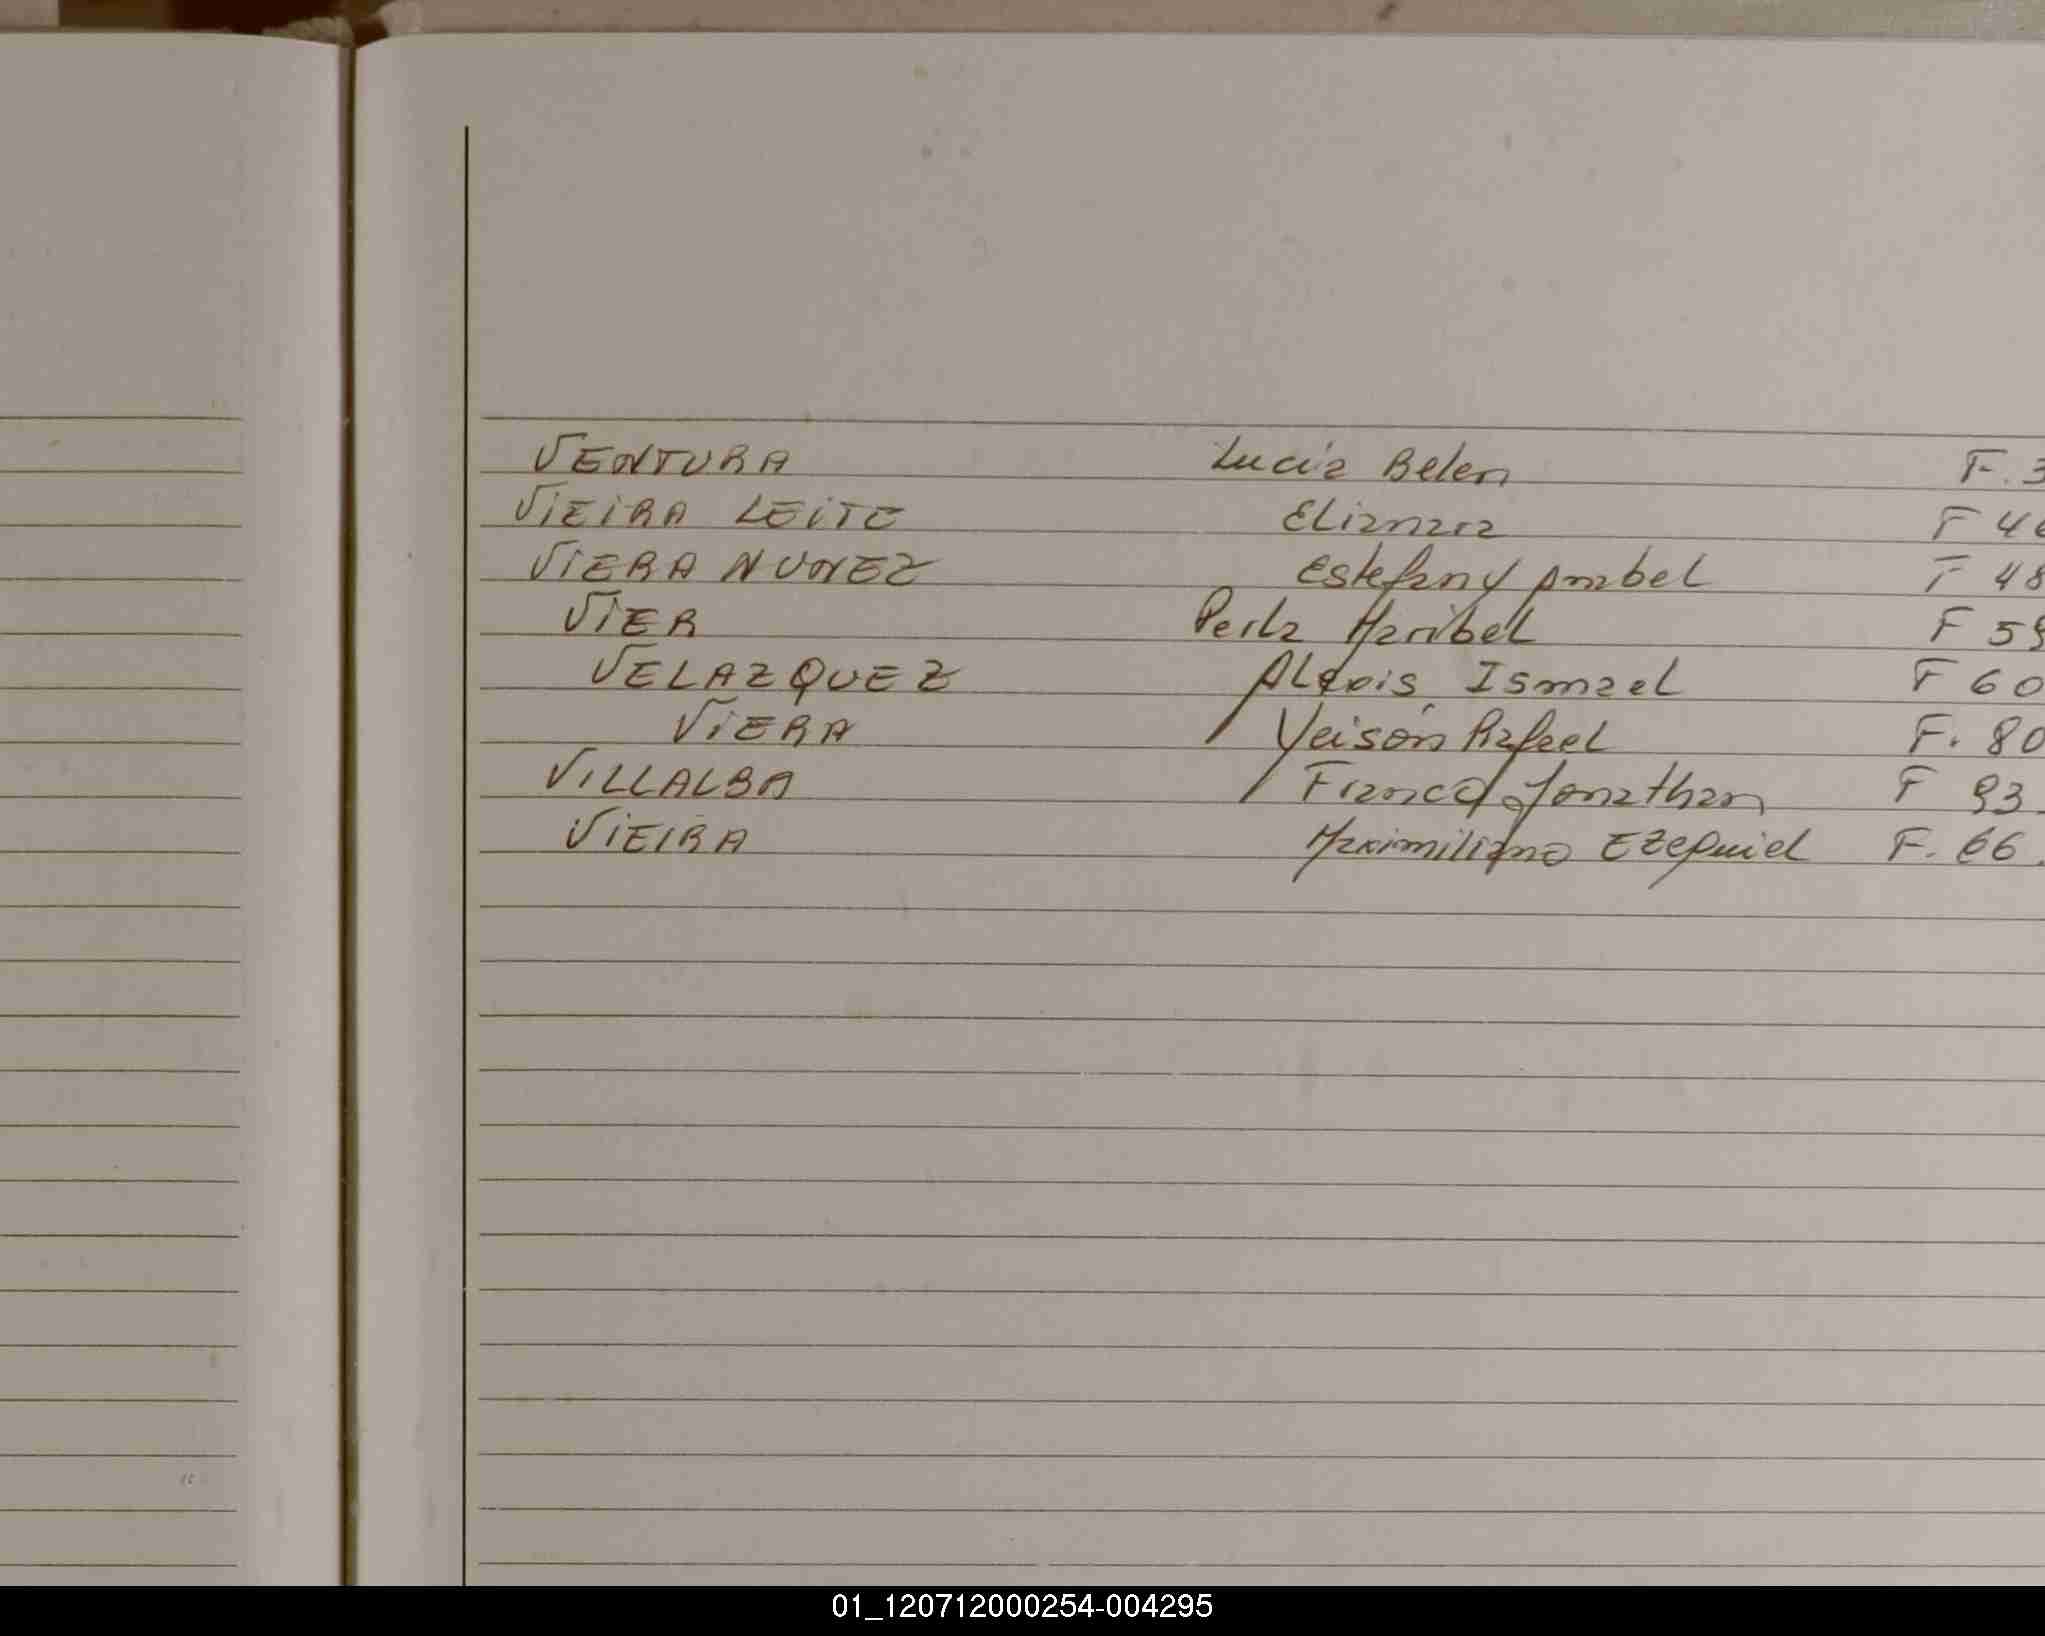 VENTURA Lucia Belen F. 3
VIEIRA LEITE Elianara F 46
VIERA NUNEZ Estefany Anabel F 48
VIER Perla Maribel F 59
VELAZQUEZ Alexis Ismael F 60
VIERA Yeison Rafael F. 80
VILLALBA Franco Jonathan F 93.
VIEIRA Maximiliano Ezequiel F. 66.
01_120712000254-004295